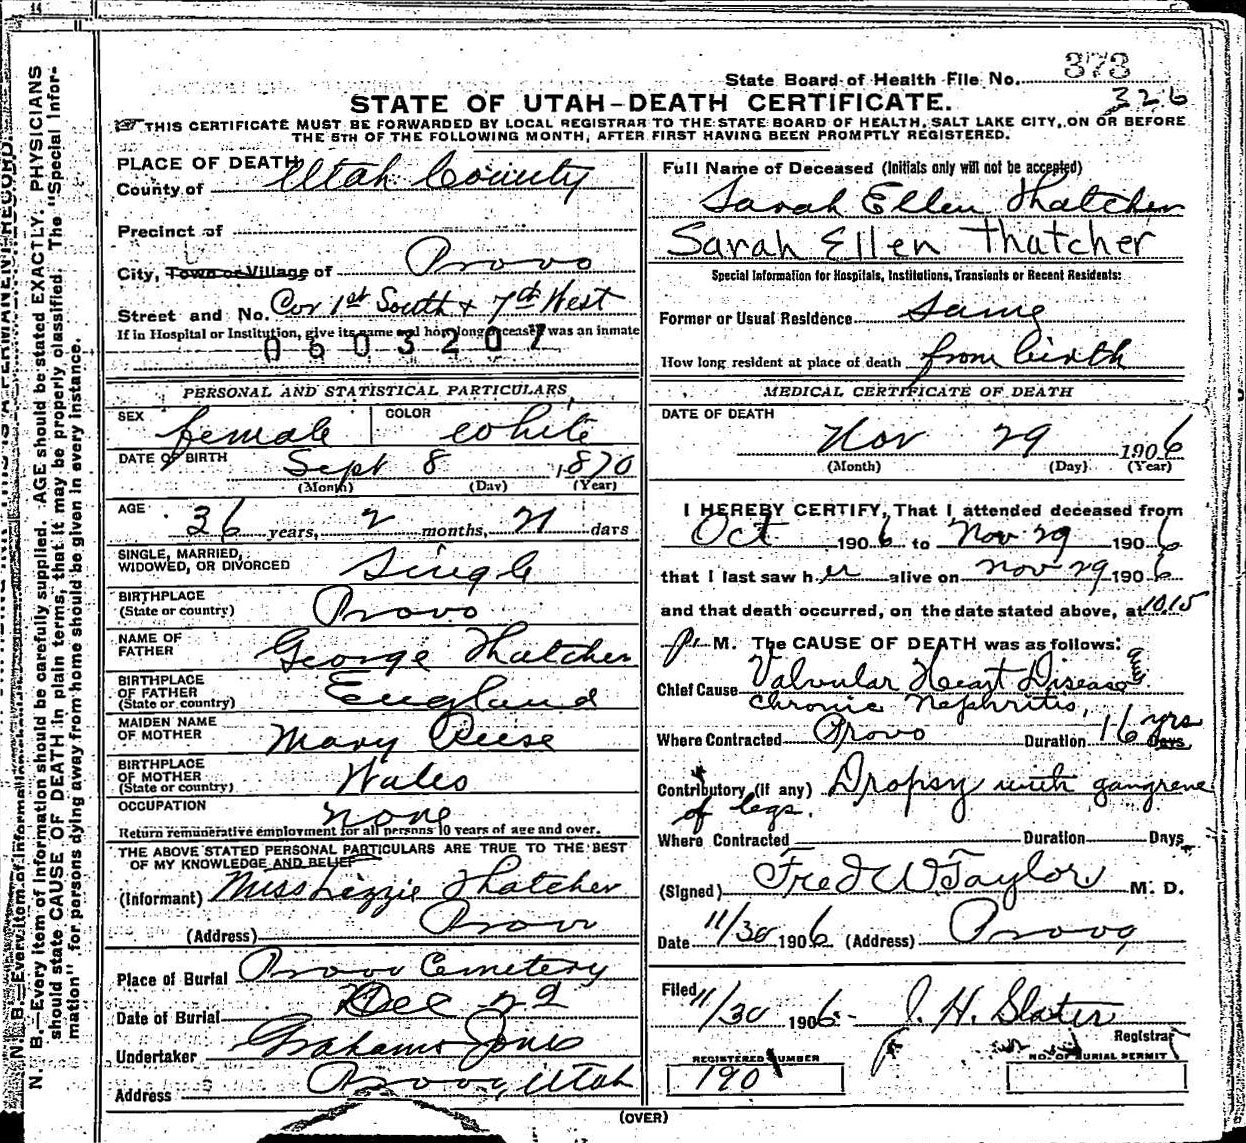 State Board of Health File No. 373
326
STATE OF UTAH-DEATH CERTIFICATE.
THIS CERTIFICATE MUST BE FORWARDED BY LOCAL REGISTRAR TO THE STATE BOARD OF HEALTH, SALT LAKE CITY, ON OR BEFORE
THE 5TH OF THE FOLLOWING MONTH, AFTER FIRST HAVING BEEN PROMPTLY REGISTERED.
PLACE OF DEATH
County of Utah County
Precinct of
City, Town or Village of Provo
Street and No. Cor 1st South & 7th West
If in Hospital or Institution, give its name and how long deceased was an inmate
0603207
PERSONAL AND STATISTICAL PARTICULARS
SEX female COLOR white
DATE OF BIRTH Sept 8 1870
(Month) (Day) (Year)
AGE 36 years, 2 months, 21 days
SINGLE, MARRIED,
WIDOWED, OR DIVORCED Single
BIRTHPLACE
(State or country) Provo
NAME OF
FATHER George Thatcher
BIRTHPLACE
OF FATHER
(State or country) England
MAIDEN NAME
OF MOTHER Mary Reese
BIRTHPLACE
OF MOTHER
(State or country) Wales
OCCUPATION none
Return remunerative employment for all persons 10 years of age and over.
THE ABOVE STATED PERSONAL PARTICULARS ARE TRUE TO THE BEST
OF MY KNOWLEDGE AND BELIEF
(Informant) Miss Lizzie Thatcher
(Address) Provo
Place of Burial Provo Cemetery
Date of Burial Dec 2d
Undertaker Graham Jones
Address Provo, Utah
Full Name of Deceased (Initials only will not be accepted)
Sarah Ellen Thatcher
Sarah Ellen Thatcher
Special Information for Hospitals, Institutions, Transients or Recent Residents:
Former or Usual Residence Same
How long resident at place of death from birth
MEDICAL CERTIFICATE OF DEATH
DATE OF DEATH
Nov 29 1906
(Month) (Day) (Year)
I HEREBY CERTIFY, That I attended deceased from
Oct 1906 to Nov 29 1906
that I last saw her alive on Nov 29 1906
and that death occurred, on the date stated above, at 10 15
P. M. The CAUSE OF DEATH was as follows:
Chief Cause Valvular Heart Disease
Chronic Nephritis,
Where Contracted Provo Duration 16 yrs Days
Contributory (if any) Dropsy with gangrene
of legs.
Where Contracted Duration Days
(Signed) Fred W Taylor M. D.
Date 11/30 1906 (Address) Provo
Filed 11/30 1906 J. H. Slater
Registrar
REGISTERED NUMBER
190
NO. OF BURIAL PERMIT
(OVER)
N. B.—Every item of information should be carefully supplied. AGE should be stated EXACTLY. PHYSICIANS
should state CAUSE OF DEATH in plain terms, that it may be properly classified. The "Special Infor-
mation" for persons dying away from home should be given in every instance.